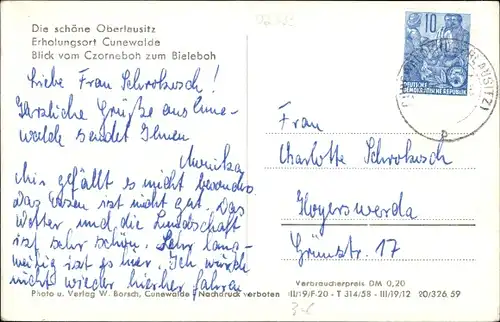 Die schöne Oberlausitz
Erholungsort Cunewalde
Blick vom Czorneboh zum Bieleboh
Liebe Frau Schrokusch!
Herzliche Grüße aus Cune-
walde sendet Ihnen
Mir gefällt es nicht besonders
Das Essen ist nicht gut. Das
Wetter und die Landschaft
ist sehr schön. Sehr lang-
weilig ist es hier. Ich würde
nicht wieder hierher fahren
Photo u. Verlag W. Borsch, Cunewalde / Nachdruck verboten
10
5
DEUTSCHE
DEMOKRATISCHE REPUBLIK
Frau
Charlotte Schrokusch
Hoyerswerda
Grünstr. 17
Verbraucherpreis DM 0,20
II/19/F-20 - T 314/58 - III/19/12 20/326,59